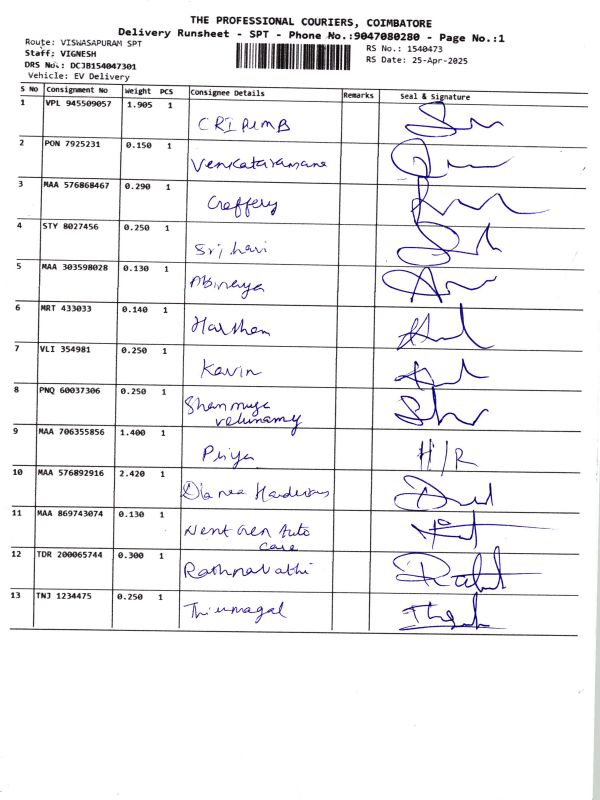 THE PROFESSIONAL COURIERS, COIMBATORE
Delivery Runsheet - SPT - Phone No.:9047080280 - Page No.:1
Route: VISWASAPURAM SPT RS No.: 1540473
Staff: VIGNESH RS Date: 25-Apr-2025
DRS No.: DCJB154047301
Vehicle: EV Delivery
S No Consignment No Weight PCS Consignee Details Remarks Seal & Signature
1 VPL 945509057 1.905 1
CRI
2 PON 7925231 0.150 1
Venkataramana
3 MAA 576868467 0.290 1
4 STY 8027456 0.250 1
Srihari
5 MAA 303598028 0.130 1
Abinaya
6 MRT 433033 0.140 1
7 VLI 354981 0.250 1
Kavin
8 PNQ 60037306 0.250 1
Shanmuga
9 MAA 706355856 1.400 1
Priya H/R
10 MAA 576892916 2.420 1
11 MAA 869743074 0.130 1
Nent Gen Auto
care
12 TDR 200065744 0.300 1
Rathnavathi
13 TNJ 1234475 0.250 1
Thirumagal